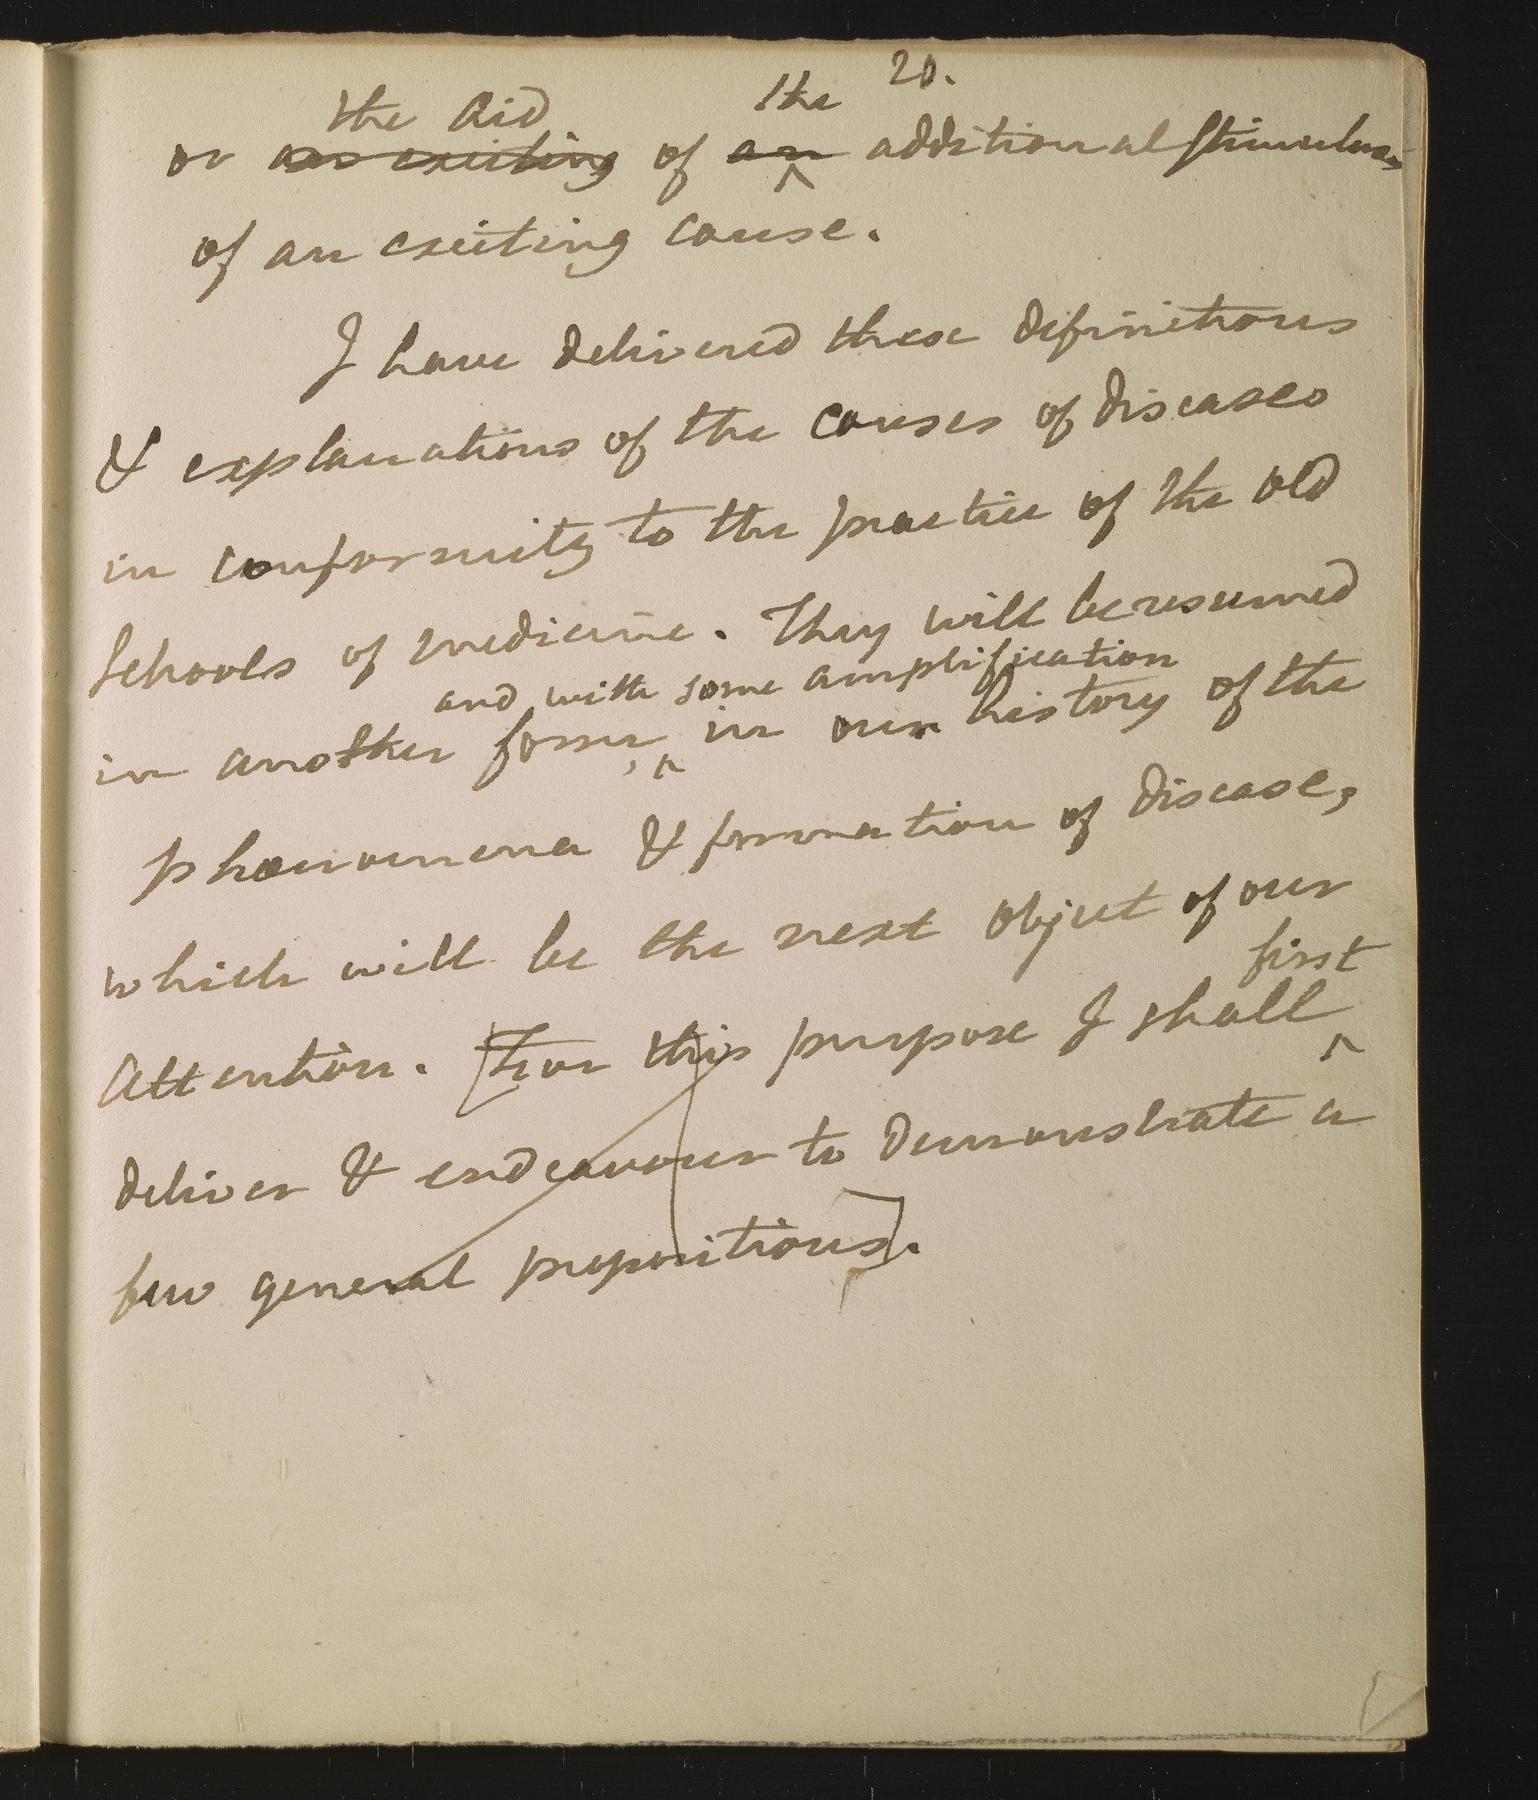 20.
the aid the
or an exciting of an additional stimulus
of an exciting cause.
I have delivered these definitions
& explanations of the causes of diseases
in conformity to the practice of the old
Schools of medicine. They will be resumed
and with some amplification
in another form, in our history of the
phænomena & formation of disease,
which will be the next object of our
first
Attention. [For this purpose I shall
deliver & endeavour to demonstrate a
few general propositions].